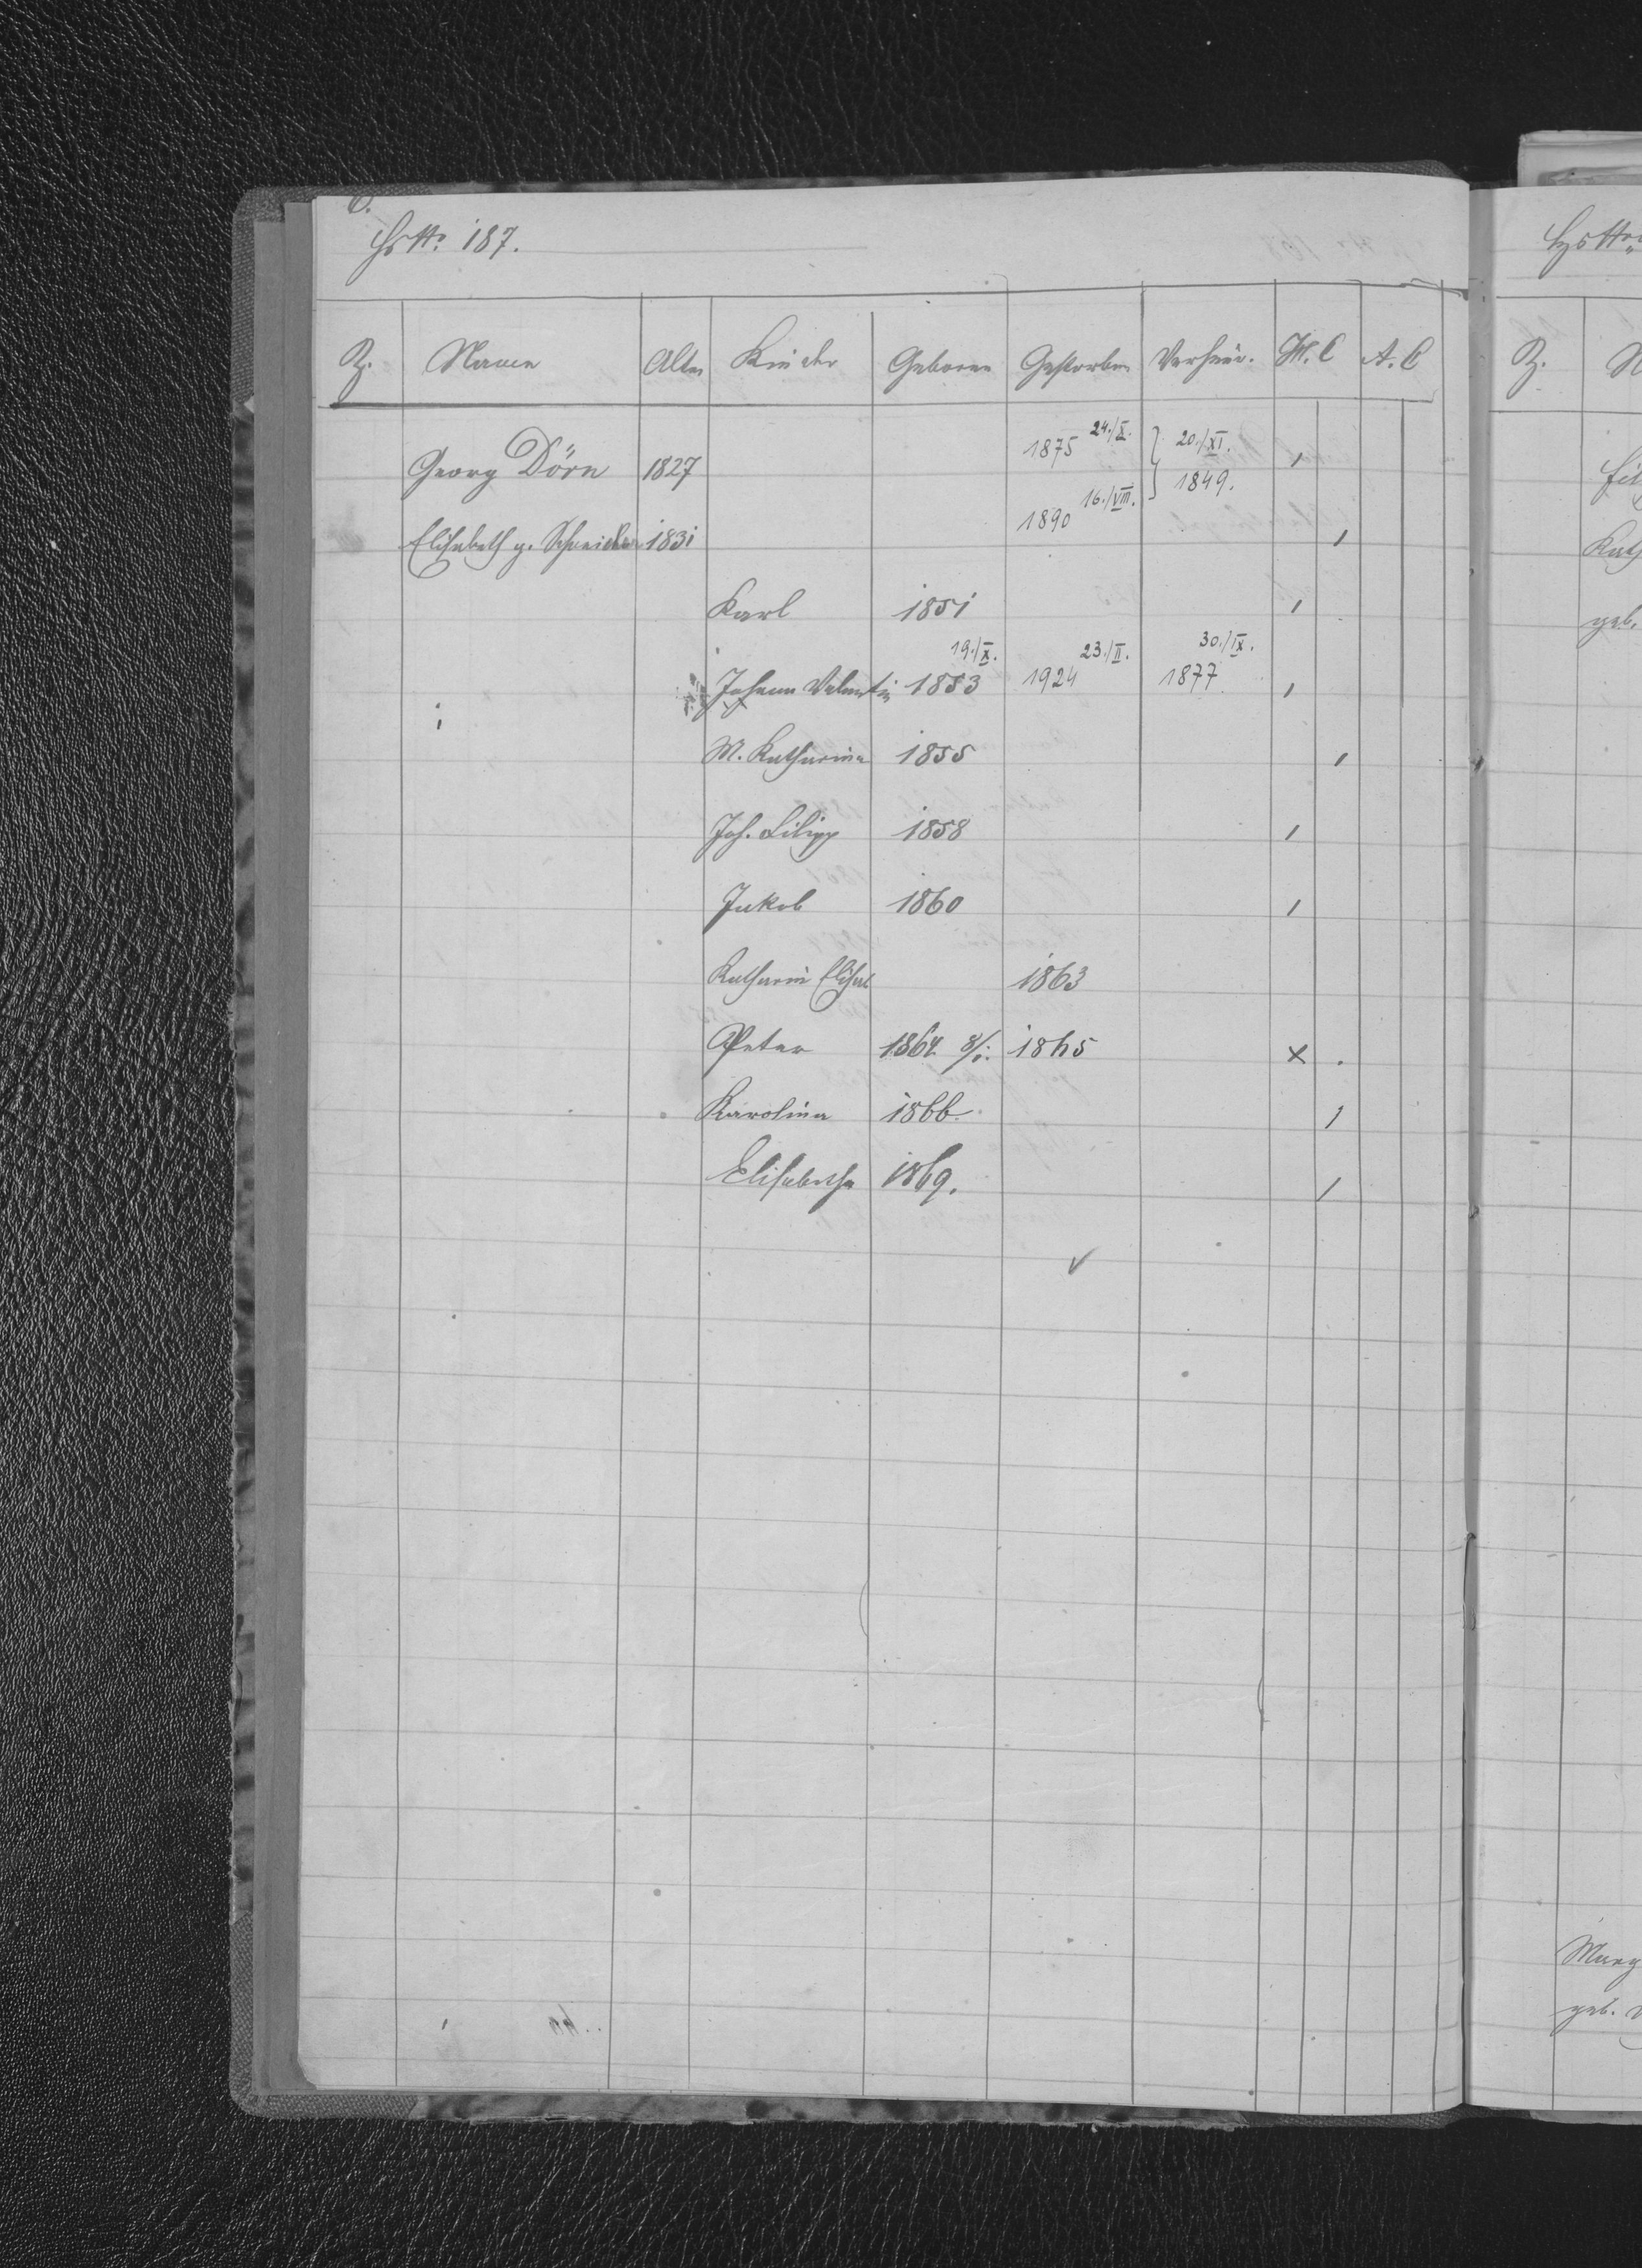 Hs No. 187.
Z. Namen Alter Kinder Geboren Gestorben Verheir. H. C A. C
Georg Dörn 1827 1875 24./X. 20./XI. 1849.
Elisabeth g. Schneider 1831 1890 16./VIII.
Karl 1851
Johann Valentin 19./X. 1853 23./II. 1924 30./IX. 1877
M. Katharina 1855
Joh. Filipp 1858
Jakob 1860
Katharin Elisab 1863
Peter 1864 1865
Karolina 1866
Elisabetha 1869.
Hs No
Z.
Kath
geb.
Marg
geb.